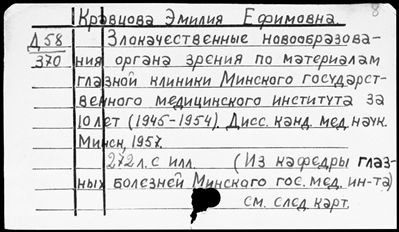 8
Кравцова Эмилия Ефимовна.
Д58 Злокачественные новообразова-
370 ния органа зрения по материалам
глазной клиники Минского государст-
венного медицинского института за
10 лет (1945-1954). Дисс. канд. мед. наук.
Минск, 1957.
272 л. с илл. (Из кафедры глаз-
ных болезней Минского гос. мед. ин-та)
см. след. карт.